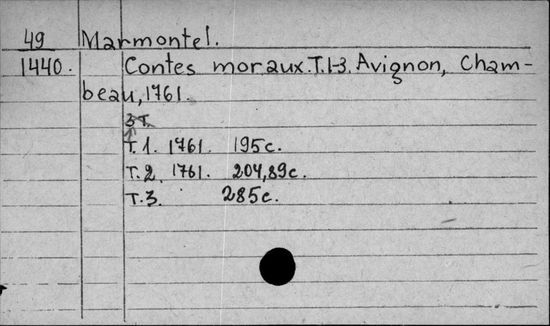 49 Marmontel.
1440. Contes moraux. T.1-3. Avignon, Cham-
beau, 1761.
3 т.
Т.1. 1761. 195с.
Т.2. 1761. 204,89с.
Т.3. 285с.